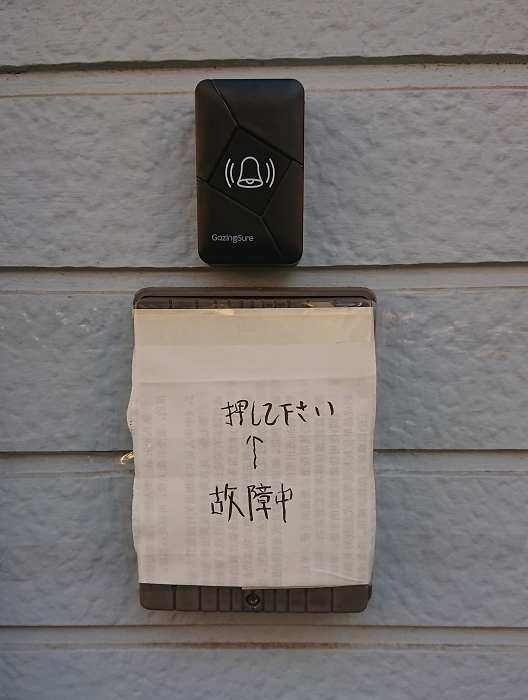 GazingSure
押して下さい
↑
故障中